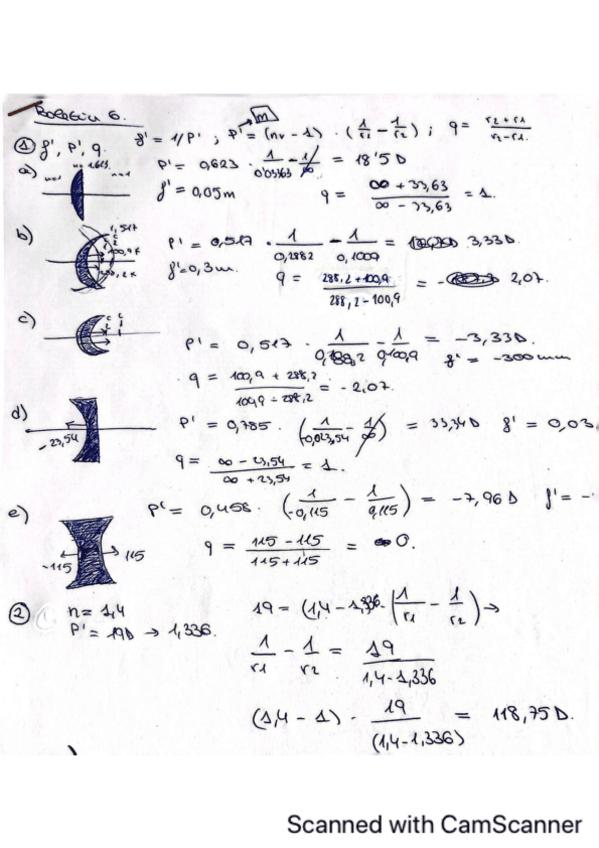 Boletín 6.
f' = 1/P' ; P' = (nv - 1) · (1/r1 - 1/r2) ; q = r2 + r1 / r2 - r1.
m
① f', P', q.
a) n=1 n=1.623 n=1
P' = 0,623 · 1/0'03363 - 1/∞ = 18'5 D
f' = 0,05m q = ∞ + 33,63 / ∞ - 33,63 = 1.
b) 1,517
P' = 0,517 · 1/0,2882 - 1/0,1009 = 3,33D.
f' = 0,3 m. q = 288,2 + 100,9 / 288,2 - 100,9 = - 2,07.
c)
P' = 0,517 · 1/0,288,2 - 1/0,100,9 = -3,33D.
f' = -300mm
q = 100,9 + 288,2 / 100,9 - 288,2 = -2,07.
d) -23,54
P' = 0,785 · (1/-0,023,54 - 1/∞) = 33,34 D f' = 0,03
q = ∞ - 23,54 / ∞ + 23,54 = 1.
e) -115 115
P' = 0,458 · (1/-0,115 - 1/0,115) = -7,96 D f' = -
q = 115 - 115 / 115 + 115 = 0.
② n = 1,4
P' = 19D → 1,336.
19 = (1,4 - 1,336 · (1/r1 - 1/r2) →
1/r1 - 1/r2 = 19 / 1,4 - 1,336
(1,4 - 1) · 19 / (1,4 - 1,336) = 118,75 D.
Scanned with CamScanner